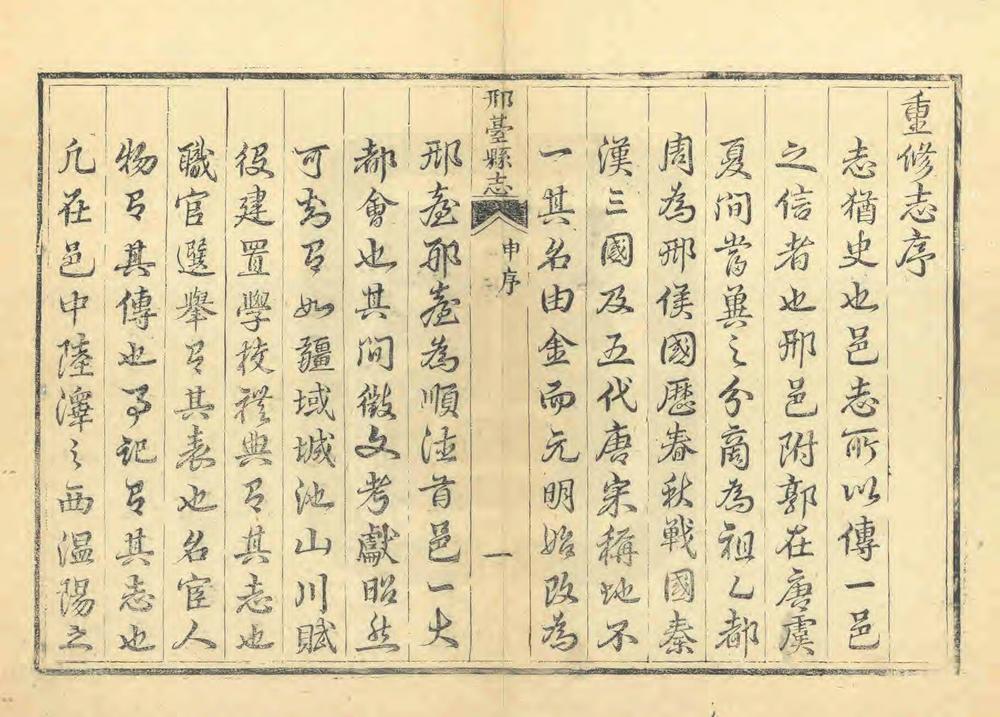 重修志序
志猶史也邑志所以傳一邑
之信者也邢邑附郭在唐虞
夏間嘗冀之分商為祖乙都
周為邢侯國歷春秋戰國秦
漢三國及五代唐宋稱地不
一其名由金而元明始改為
邢臺縣志
申序
一
邢臺邢臺為順德首邑一大
都會也其間徵文考獻昭然
可考者如疆域城池山川賦
役建置學校禮典有其志也
職官選舉有其表也名宦人
物有其傳也事記有其志也
凡在邑中陸澤之西溫陽之